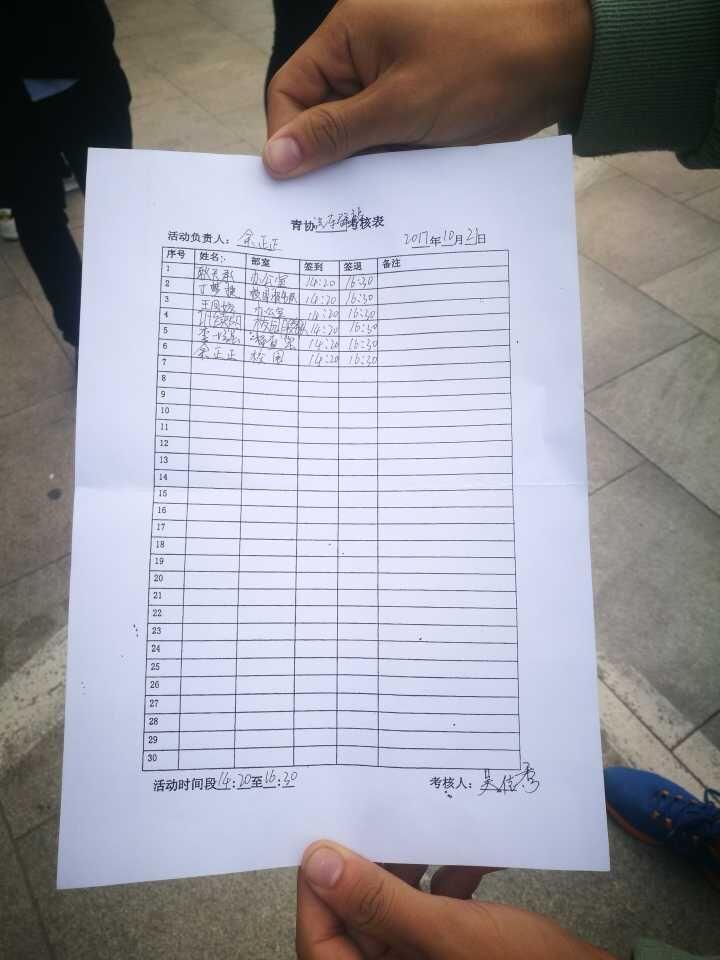 青协汽车驿站考核表
活动负责人：余正正 2017年10月21日
序号 姓名 部室 签到 签退 备注
1 办公室 14:20 16:30
2 丁 14:20 16:30
3 王 办公室 14:20 16:30
4 14:20 16:30
5 李 14:20 16:30
6 余正正 校园 14:20 16:30
7
8
9
10
11
12
13
14
15
16
17
18
19
20
21
22
23
24
25
26
27
28
29
30
活动时间段14:20至16:30 考核人：吴佳